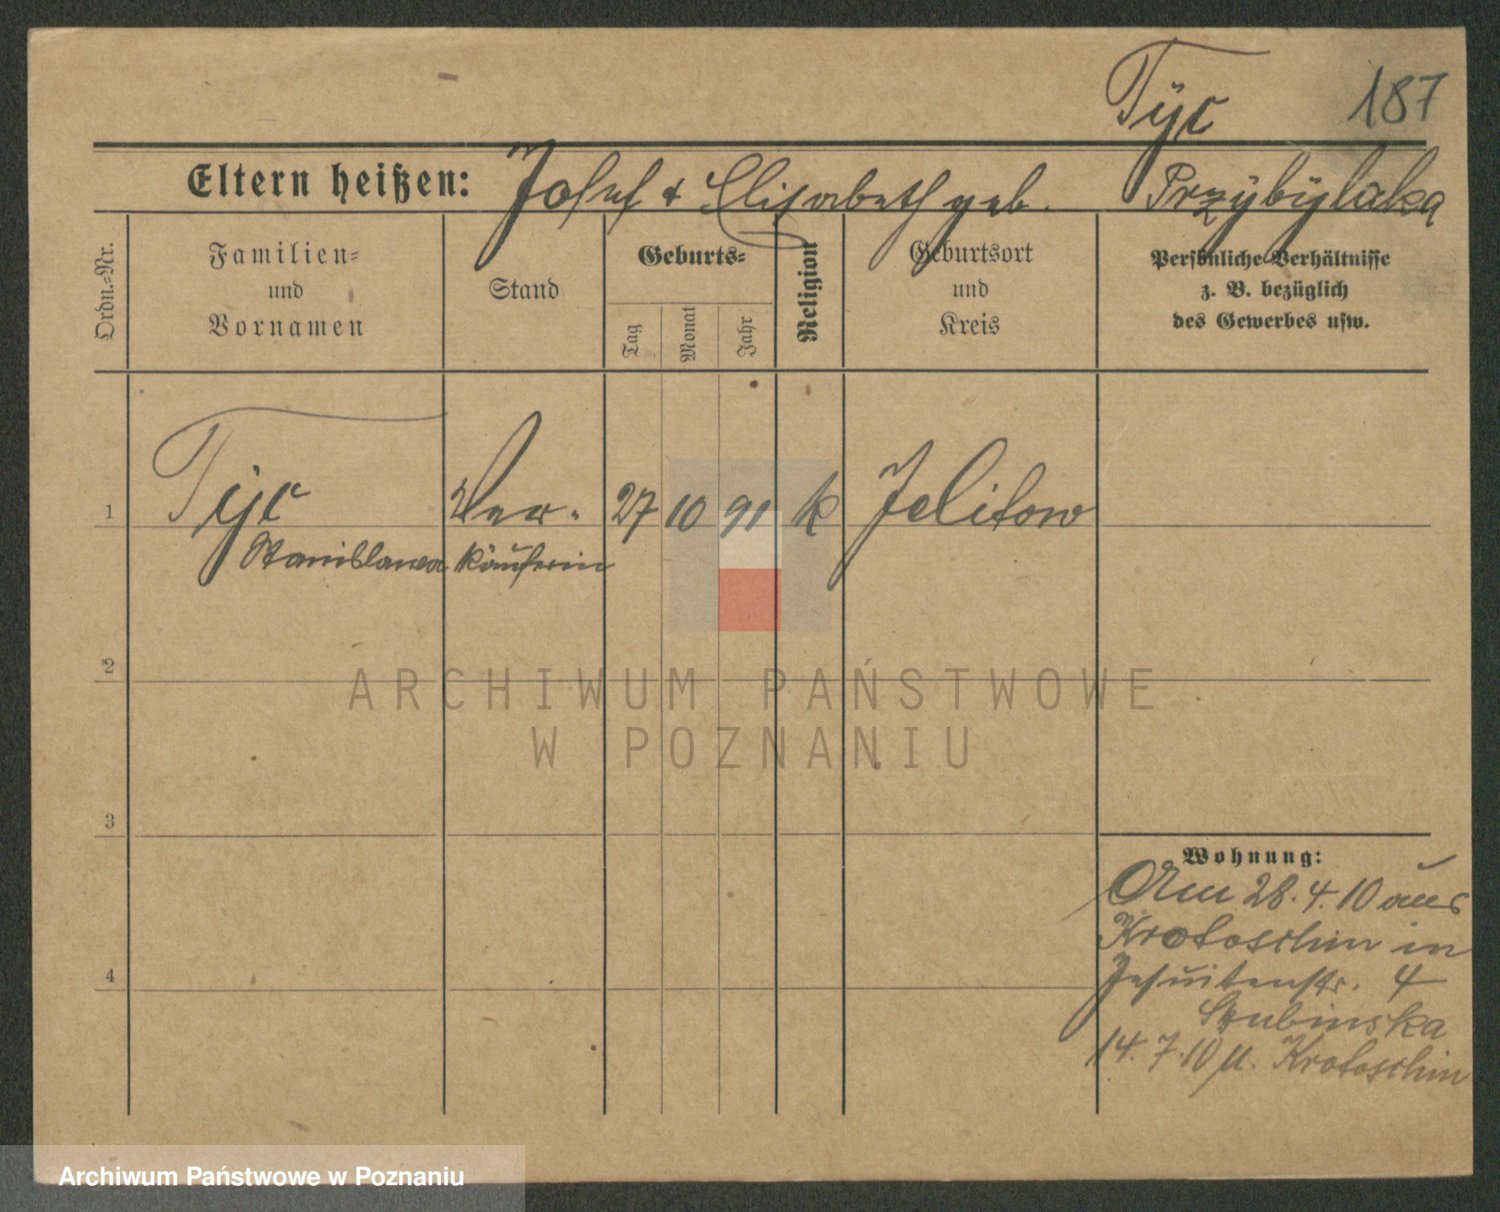 Tÿc 187
Eltern heißen: Josef & Elisabeth geb. Przÿbÿlaka
Ordn.-Nr.
Familien-
und
Vornamen
Stand
Geburts-
Tag
Monat
Jahr
Religion
Geburtsort
und
Kreis
Persönliche Verhältnisse
z. B. bezüglich
des Gewerbes usw.
1 Tÿc Ver- 27 10 91 k Jelitow
Stanislawa käuferin
2
ARCHIWUM PAŃSTWOWE
W POZNANIU
3
Wohnung:
Am 28.4.10 aus
Krotoschin in
Jesuitenstr. 4
4
14.7.10 n. Krotoschin
Archiwum Państwowe w Poznaniu